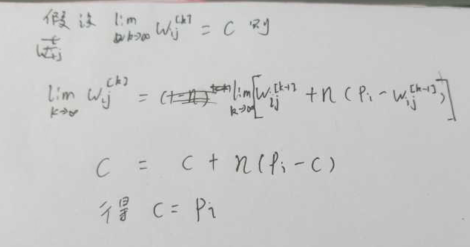 假设 lim k→∞ W_ij^[k] = C 则
lim k→∞ W_ij^[k] = lim k→∞ [W_ij^[k-1] + η(P_i - W_ij^[k-1])]
C = C + η(P_i - C)
得 C = P_i